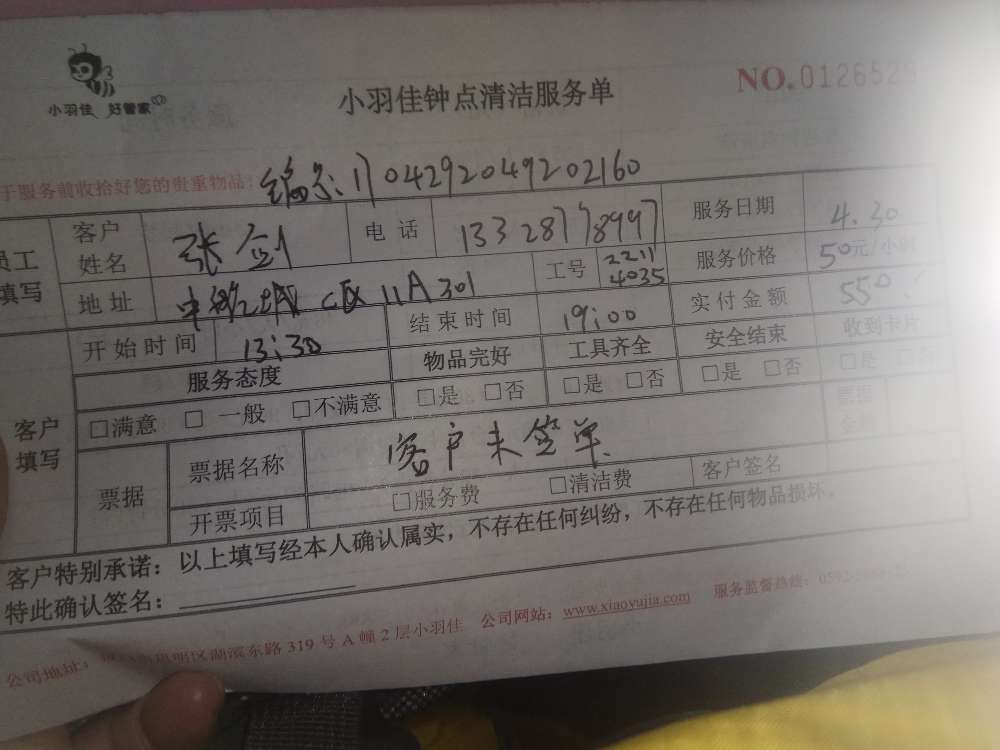 小羽佳 好管家
小羽佳钟点清洁服务单
NO.
于服务前收拾好您的贵重物品!
编号:1704292049202160
员工填写 客户姓名 张剑 电话 13328778997 服务日期 4.30
地址 C区11A301 工号 2211 4035 服务价格 50元/小时
开始时间 13:30 结束时间 19:00 实付金额 550
客户填写 服务态度 物品完好 工具齐全 安全结束 收到卡片
□满意 □一般 □不满意 □是 □否 □是 □否 □是 □否 □是
票据 票据名称 客户未签单 票据
开票项目 □服务费 □清洁费 客户签名
客户特别承诺:以上填写经本人确认属实,不存在任何纠纷,不存在任何物品损坏。
特此确认签名:
公司地址: 明区湖滨东路319号A幢2层小羽佳 公司网站:www.xiaoyujia.com 服务监督热线:0592